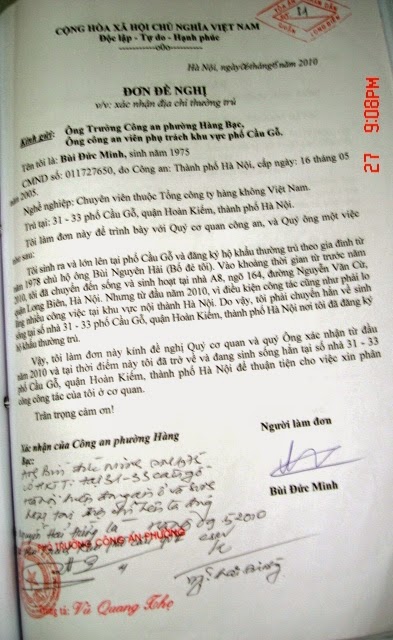 CỘNG HÒA XÃ HỘI CHỦ NGHĨA VIỆT NAM
Độc lập - Tự do - Hạnh phúc
-----------o0o-----------
Hà Nội, ngày tháng năm 2010
ĐƠN ĐỀ NGHỊ
v/v: xác nhận địa chỉ thường trú
Kính gửi: Ông Trưởng Công an phường Hàng Bạc,
Ông công an viên phụ trách khu vực phố Cầu Gỗ.
Tên tôi là: Bùi Đức Minh, sinh năm 1975
CMND số: 011727650, do Công an: Thành phố Hà Nội, cấp ngày: 16 tháng 05
năm 2005.
Nghề nghiệp: Chuyên viên thuộc Tổng công ty hàng không Việt Nam.
Trú tại: 31 - 33 phố Cầu Gỗ, quận Hoàn Kiếm, thành phố Hà Nội.
Tôi làm đơn này để trình bày với Quý cơ quan công an, và Quý ông một việc
như sau:
Tôi sinh ra và lớn lên tại phố Cầu Gỗ và đăng ký hộ khẩu thường trú theo gia đình từ
năm 1978 chủ hộ ông Bùi Nguyên Hải (Bố đẻ tôi). Vào khoảng thời gian từ trước năm
2010, tôi đã chuyển đến sống và sinh hoạt tại nhà A8, ngõ 164, đường Nguyễn Văn Cừ,
quận Long Biên, Hà Nội. Nhưng từ đầu năm 2010, vì điều kiện công tác cũng như phải lo
nhiều công việc tại khu vực nội thành Hà Nội. Do vậy, tôi phải chuyển hẳn về sinh
sống tại số nhà 31 - 33 phố Cầu Gỗ, quận Hoàn Kiếm, thành phố Hà Nội nơi tôi đã đăng ký
hộ khẩu thường trú.
Vậy, tôi làm đơn này kính đề nghị Quý cơ quan và quý Ông xác nhận từ đầu
năm 2010 và tại thời điểm này tôi đã trở về và đang sinh sống hẳn tại số nhà 31 - 33
phố Cầu Gỗ, quận Hoàn Kiếm, thành phố Hà Nội để thuận tiện cho việc xin phân
công công tác của tôi ở cơ quan.
Trân trọng cảm ơn!
Xác nhận của Công an phường Hàng
Bạc:
Người làm đơn
Bùi Đức Minh
TRƯỞNG CÔNG AN PHƯỜNG
Vũ Quang Thọ
27 9:08PM